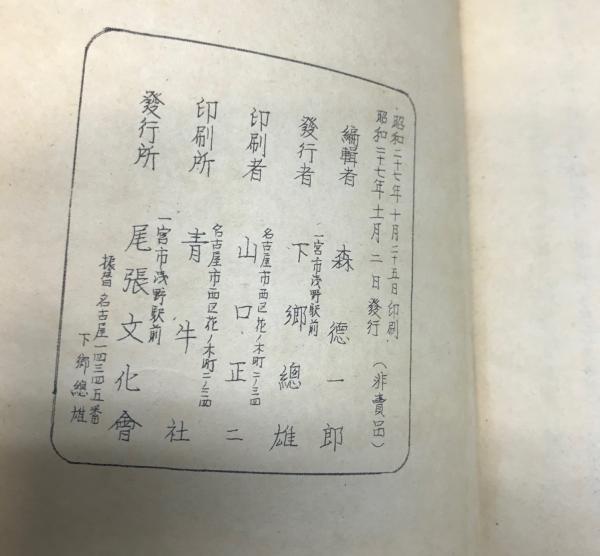 昭和二十七年十月二十五日印刷
昭和二十七年十一月二日發行
（非賣品）
編輯者 森德一郎
一宮市浅野駅前
發行者 下鄉總雄
名古屋市西区花ノ木町二ノ三四
印刷者 山口正二
名古屋市西区花ノ木町二ノ三四
印刷所 青牛社
一宮市浅野駅前
發行所 尾張文化會
振替名古屋一四三四五番
下鄉總雄